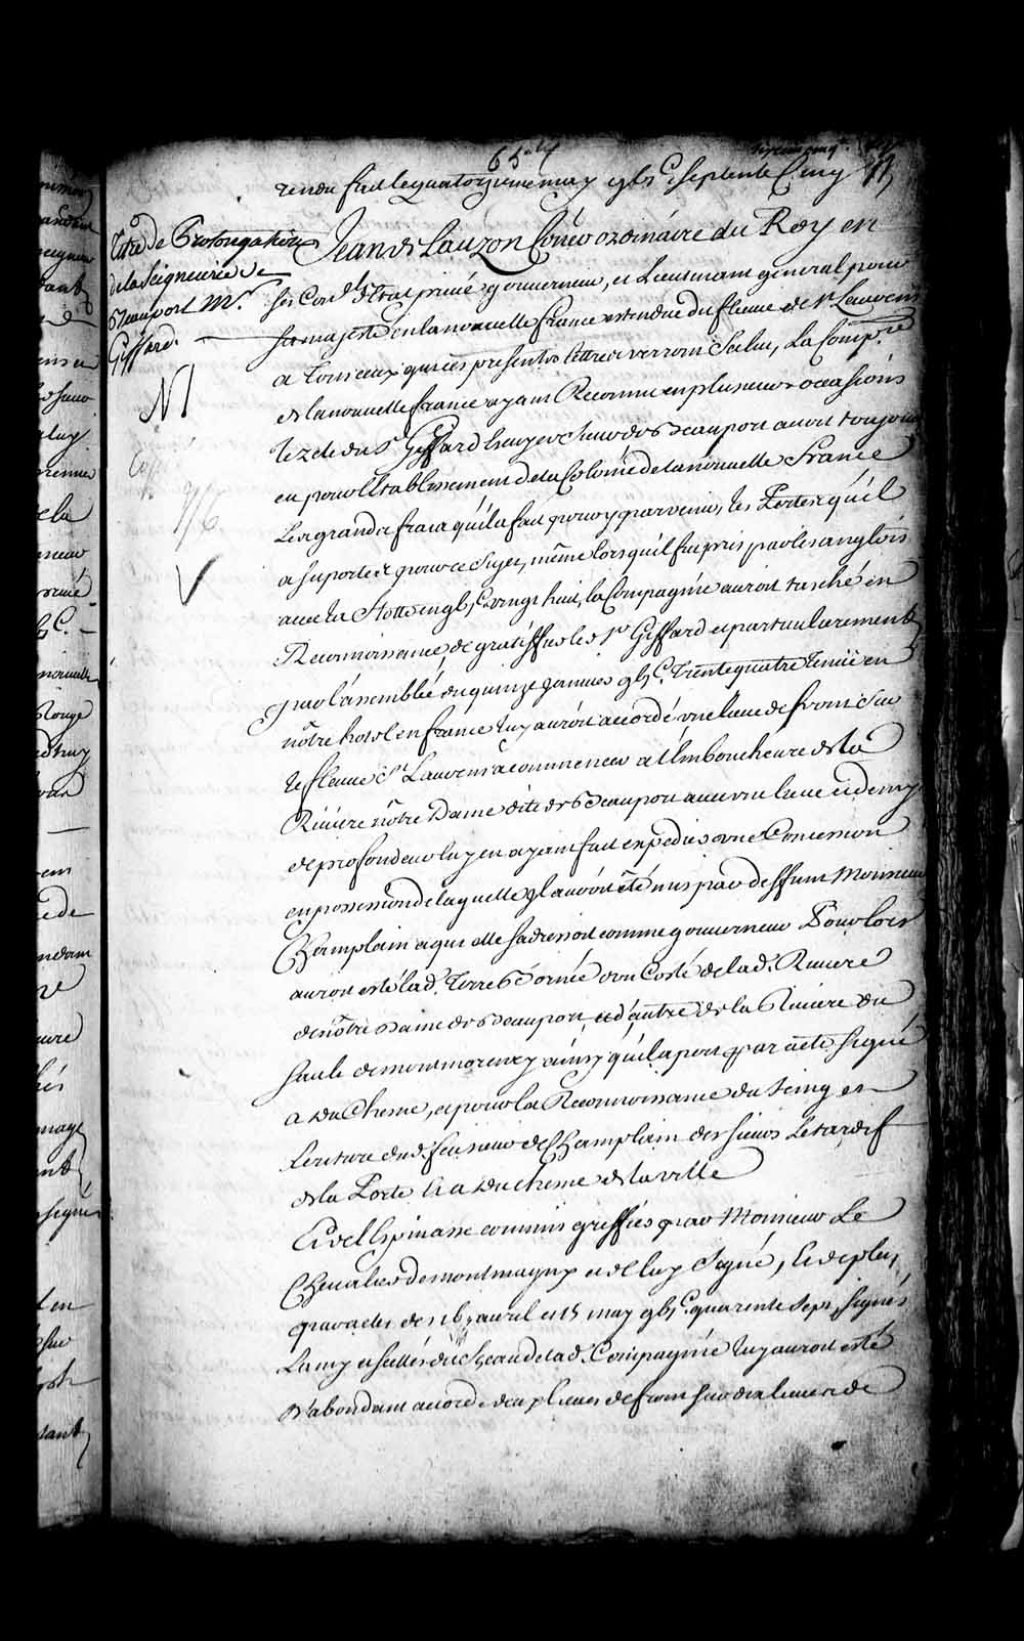 65
rendu fait le quatorzieme may gbj.c septente Cinq
Titre de Prolongation
de la Seigneurie de
Beauport Mr.
Giffard.
Jean de Lauzon Coner ordinaire du Roy en
ses Conls d'Etat privé gouverneur, et Lieutenant general pour
sa majesté en la nouvelle france estendue du fleuve de St. Laurens
a tous ceux qui ces presentes lettres verront Salut, La Compnie
de la nouvelle france ayant Reconnu en plusieurs occasions
le zele du Sr. Giffard Escuyer Sieur de Beauport auoit toujours
eu pour l'Etablissement de la Colonie de la nouuelle France
Les grands fraix qu'il a fait pour y paruenir, les Pertes qu'il
a suportées pour ce Sujet, même lorsqu'il fut pris par les anglois
auec la flotte en gbj.c vingt huit, la Compagnie auroit tasché en
Reconnoissance de gratiffier le Sr Giffard et particulierement
par l'assemblée du quinze januier gbj.c Trente quatre Tenüe en
nôtre hotel en france luy auroit accordé une lieue de front sur
le fleuue St. Laurens a commencer a l'Embouchure de la
Riuiere nôtre Dame dite de Beauport auec une lieue et demy
de profondeur luy en ayant fait expedier une Concession
en possession de laquelle il auroit été mis par deffunt Monsieur
Champlain a qui elle s'adressoit comme gouverneur Pour lors
auroit esté lad. Terre Bornée d'un Costé de lad. Riuiere
de nôtre Dame de Beauport, et d'autre de la Riuiere du
Sault de montmorency ainsy qu'il apert par acte signé
a Du Chesne, et pour la Reconnoissance du Seing et
Ecriture dud. feu sieur de Champlain des sieurs Letardif
de la Porte et a Duchesne de la ville
Et de l'Espinasse commis greffier par Monsieur Le
Cheualier de montmagny et de luy Signé, Et de plus
par actes des 16 avril et 15 may gbj.c quarente Sept, signés
Lamy et scellés du Sceau de lad. Compagnie luy auroit esté
D'abondant accordé deux lieues de front sur dix lieues de